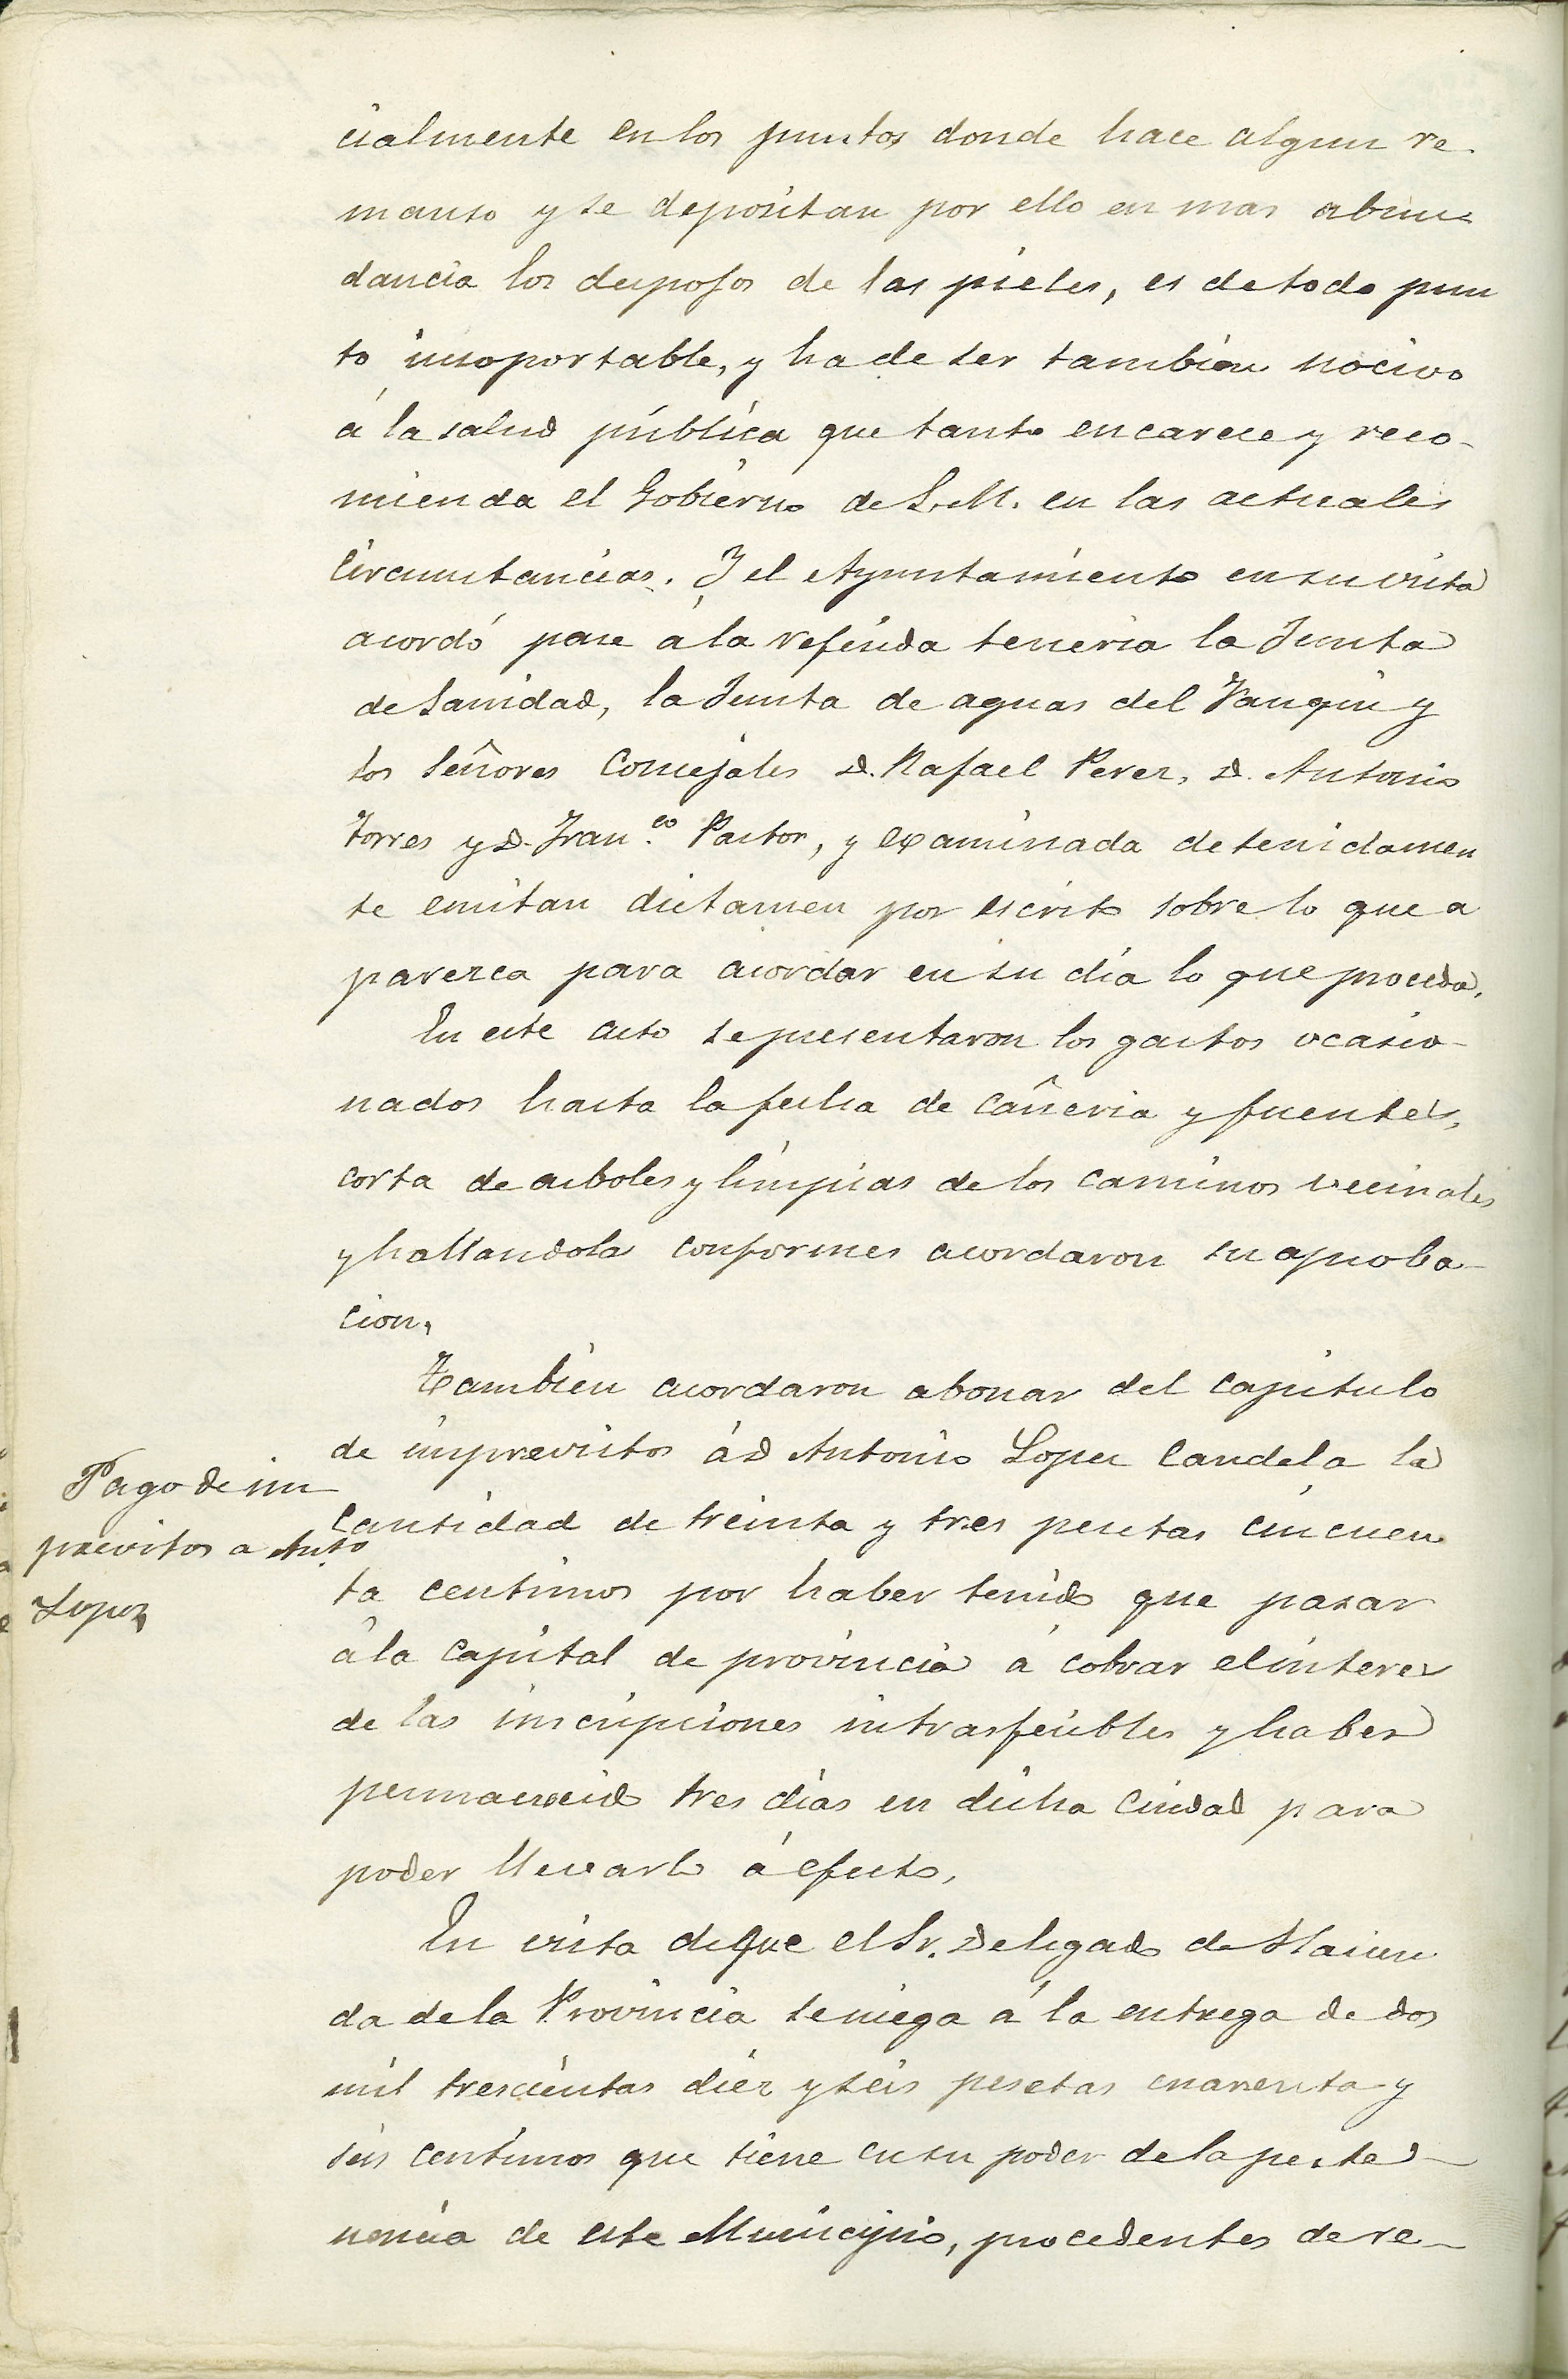 cialmente en los puntos donde hace algun re-
manso y se depositan por ello en mas abun-
dancia los despojos de las pieles, es de todo pun
to insoportable, y ha de ser tambien nocivo
á la salud pública que tanto encarece y reco-
mienda el Gobierno de S.M. en las actuales
circunstancias. Y el Ayuntamiento en su vista
acordó pase á la referida teneria la Junta
de Sanidad, la Junta de aguas del Fauquí y
los Señores Concejales D. Rafael Perez, D. Antonio
Torres y D. Fran.co Pastor, y examinada detenidamen
te emitan dictamen por escrito sobre lo que a
parezca para acordar en su dia lo que proceda.
En este acto se presentaron los gastos ocasio-
nados hasta la fecha de cañeria y fuentes,
corta de arboles y limpias de los caminos vecinales
y hallandola conformes acordaron su aproba-
cion.
Tambien acordaron abonar del capitulo
de imprevistos á D Antonio Lopez Candela la
Pago de im
cantidad de treinta y tres pesetas cincuen
previstos a Anto
ta centimos por haber tenido que pasar
Lopez
á la capital de provincia á cobrar el interes
de las inscripciones intrasferibles y haber
permanecido tres dias en dicha Ciudad para
poder llevarlo á efecto.
En vista de que el Sr. Delegado de Hacien
da de la Provincia se niega á la entrega de dos
mil trescientas diez y seis pesetas cuarenta y
seis centimos que tiene en su poder de la perte-
nencia de este Municipio, procedentes de re-